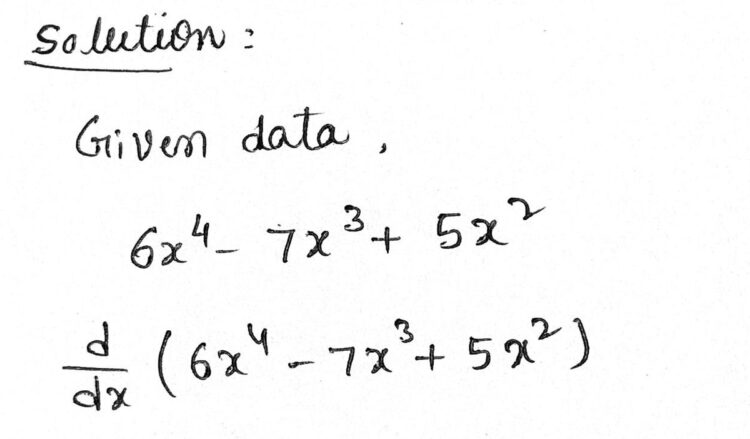 Solution :
Given data ,
6x⁴ - 7x³ + 5x²
d/dx (6x⁴ - 7x³ + 5x²)